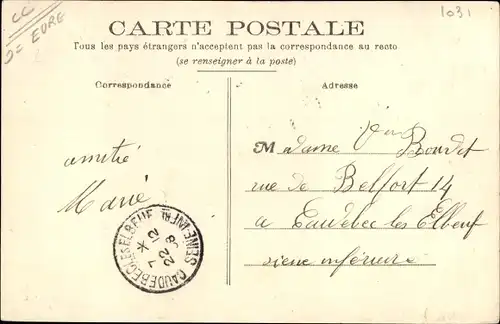 CC
D= EURE
1031
CARTE POSTALE
Tous les pays étrangers n'acceptent pas la correspondance au recto
(se renseigner à la poste)
Correspondance
Adresse
amitié
Marie
Madame Bourdet
rue de Belfort 14
a Caudebec les Elbeuf
siene inférieure
CAUDEBEC-LES-ELBEUF
SEINE-INFRE
7 12
22 08